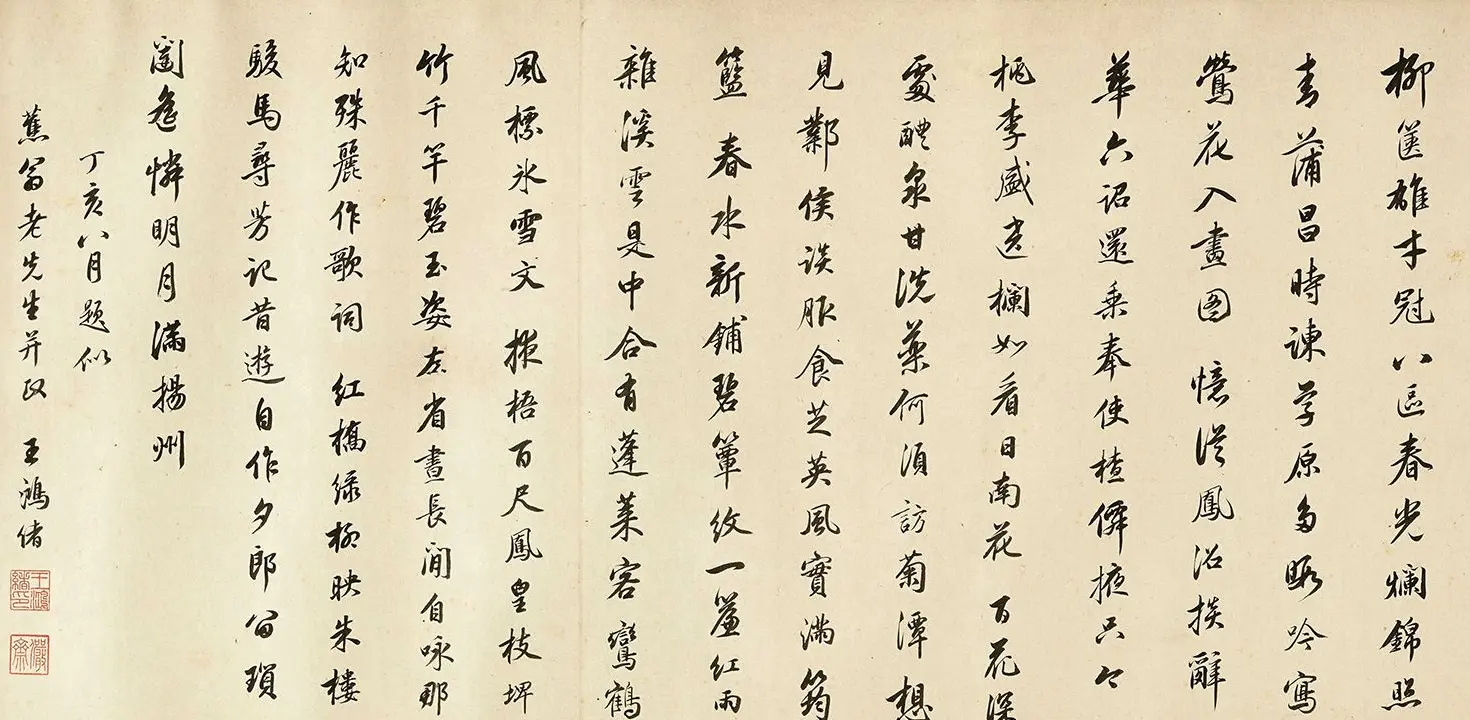 柳篋雄才冠八區春光爛錦照
青蒲昌時諫學原多暇吟寫
鶯花入畫圖 憶從鳳沼掞辭
華六詔還乘奉使楂僻掖只今
桃李盛遶欄如看日南花 百花深
處醴泉甘洗藥何須訪菊潭想
見鄴侯談服食芝英風實滿筠
籃 春水新鋪碧簟紋一簾紅雨
雜溪雲是中合有蓬萊客鸞鶴
風標冰雪文 掖梧百尺鳳皇枝埤
竹千竿碧玉姿左省晝長閒自咏那
知殊麗作歌詞 紅橋綠柳映朱樓
駿馬尋芳記昔遊自作夕郎留瑣
闈應憐明月滿揚州
丁亥八月題似
蕉翁老先生并政 王鴻緒
王鴻緒印
儼齋